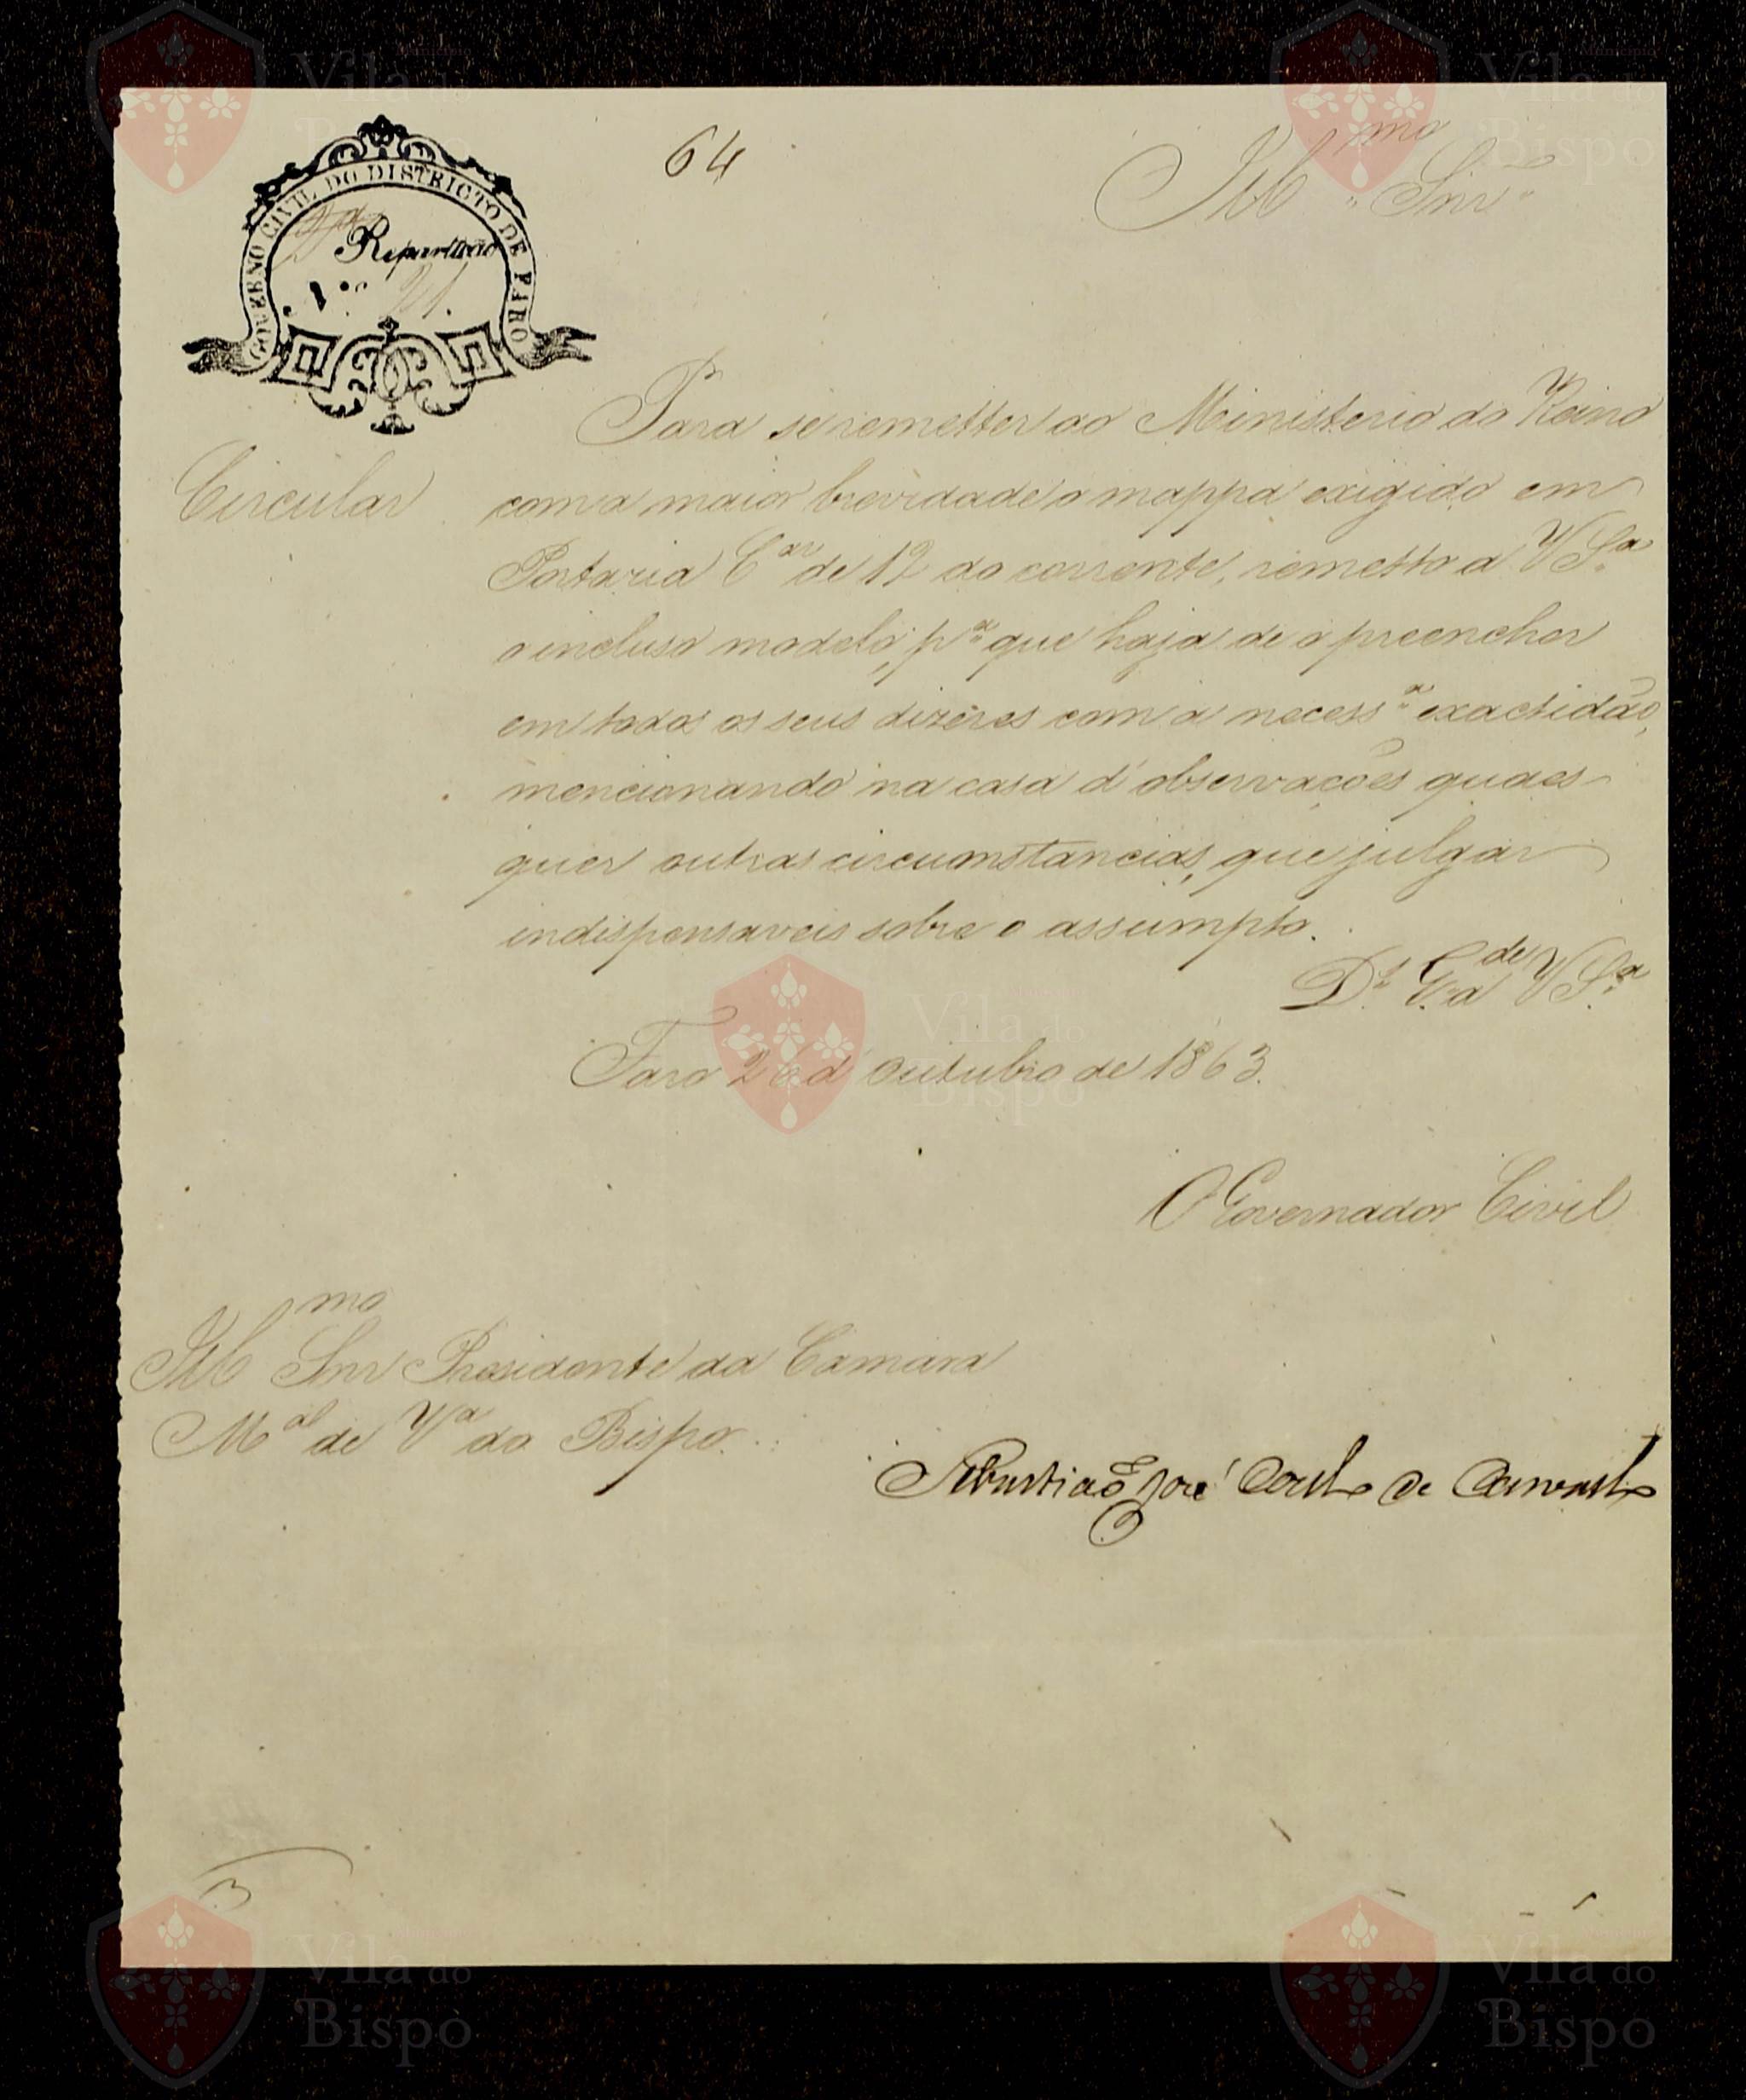 64
Ill.mo Snr.
GOVERNO CIVIL DO DISTRICTO DE FARO
2ª Repartição
N.º 21.
Circular
Para se remetter ao Ministerio do Reino
com a maior brevidade o mappa exigido em
Portaria C.ar de 12 do corrente, remetto a V S.ª
o incluso modelo, p.ª que haja de o preencher
em todos os seus dizêres com a necess.ª exactidão,
mencionando na casa d'observações quaes-
quer outras circumstancias, que julgar
indispensaveis sobre o assumpto.
D.s G.de a V S.ª
Faro 26 d'Outubro de 1863.
O Governador Civil
Ill.mo Snr Presidente da Camara
M.al de V.ª do Bispo.
Sebastião José Coelho de Carvalho
Vila do
Bispo